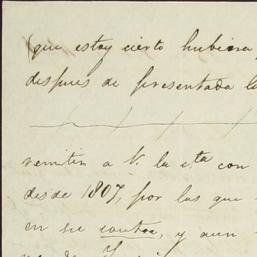 (que estoy cierto hubiera
despues de presentada la
remitir a V. la cta con
desde 1807, por las que
en su contra, y aun